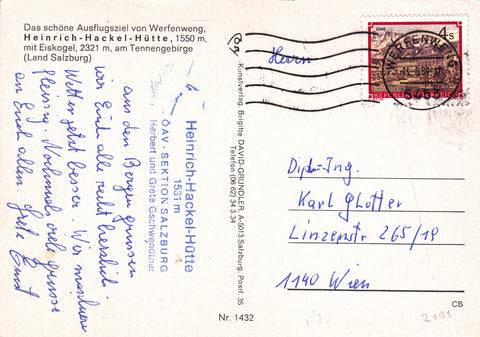 Das schöne Ausflugsziel von Werfenweng,
Heinrich-Hackel-Hütte, 1550 m,
mit Eiskogel, 2321 m, am Tennengebirge
(Land Salzburg)
aus den Bergen grüssen
wir Euch alle recht herzlich.
Wetter jetzt besser. Wir
fleissig. Nochmals viele Grüsse
an Euch allen. Grete
Heinrich-Hackel-Hütte
1531 m
ÖAV-SEKTION SALZBURG
Herbert und Grete Gschwendtner
Kunstverlag Brigitte DAVID-GRÜNDLER, A-5013 Salzburg, Postf. 35
Telefon (06 62) 34 3 34
Nr. 1432
4s
WERFENWENG
REPUBLIK ÖSTERREICH
Herrn
Dipl.-Ing.
Karl Glotter
Linzerstr 265/19
1140 Wien
CB